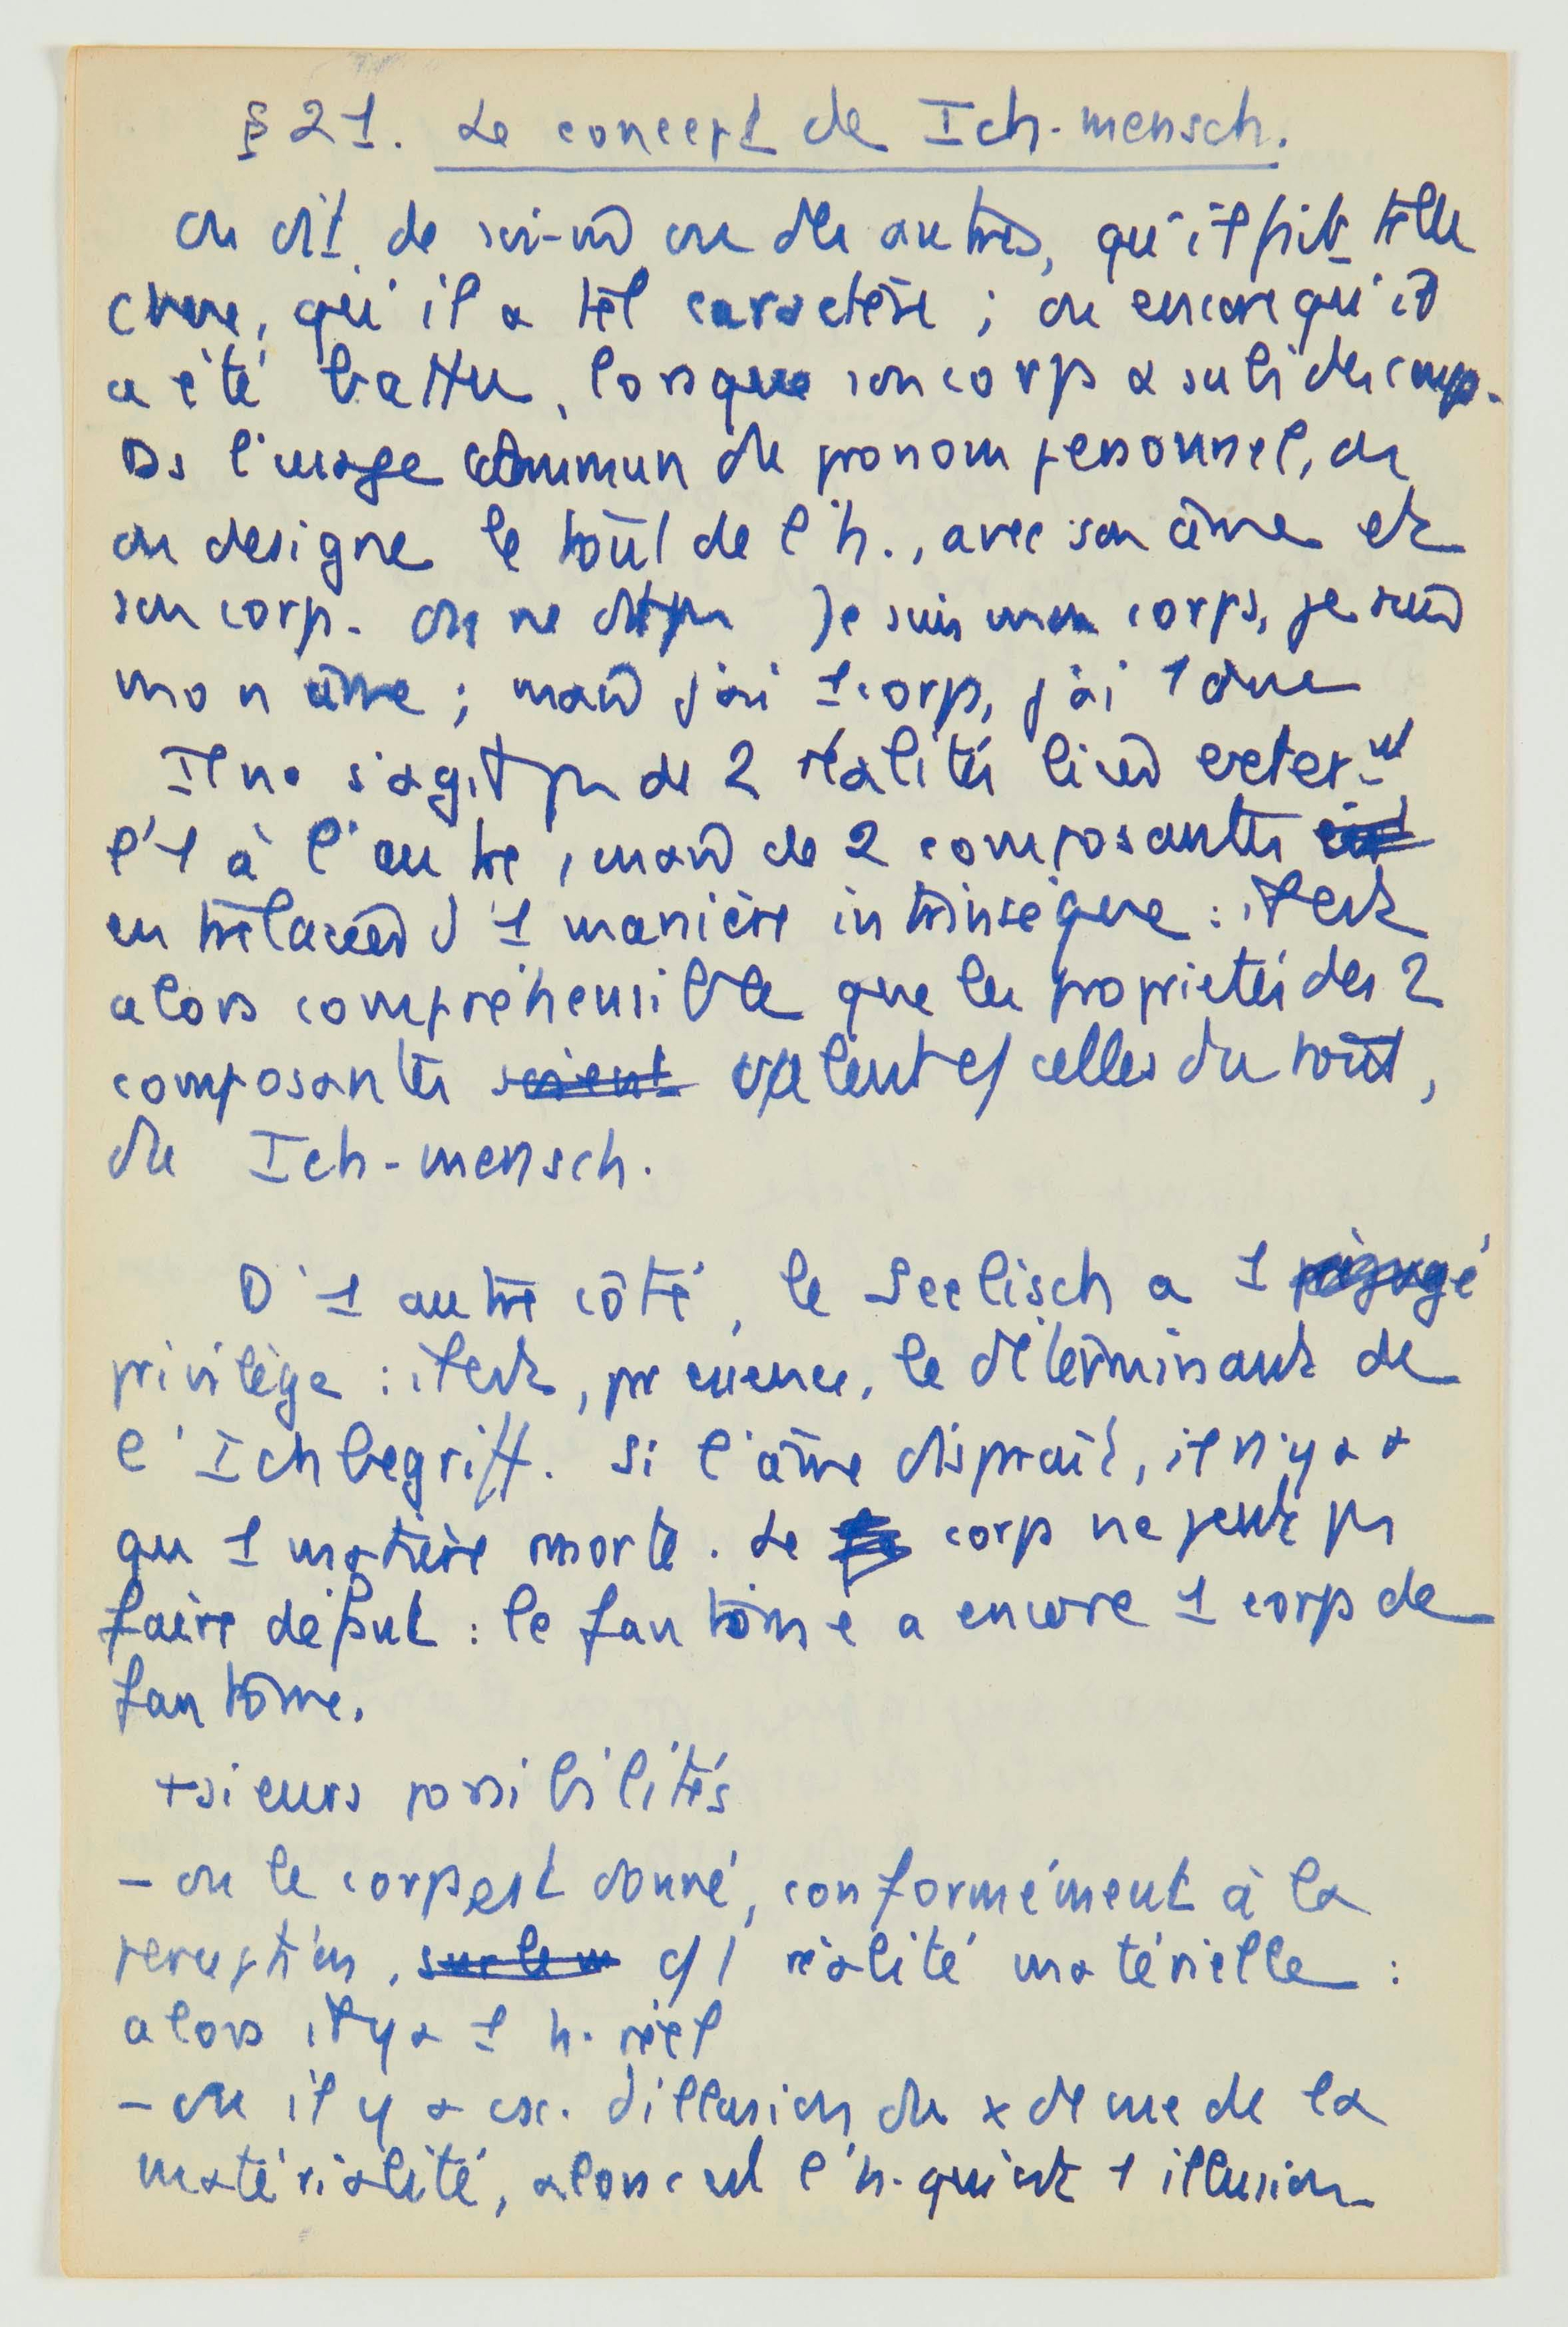 § 21. Le concept de Ich-mensch.
On dit de soi-m̂ ou des autres, qu'il fait telle
chose, qu'il a tel caractère ; ou encore qu'il
a été battu, lorsque son corps a subi des coups.
Ds l'usage commun du pronom personnel, on
on designe le tout de l'h., avec son âme et
son corps. On ne dit pas Je suis mon corps, je suis
mon âme ; mais j'ai 1 corps, j'ai 1 âme
Il ne s'agit pas de 2 réalités liées exter-nt
l'1 à l'autre, mais de 2 composantes
entrelacées d'1 manière intrinsèque : il est
alors compréhensible que les proprietés des 2
composantes soient valent c/ celles du tout,
du Ich-mensch.
D'1 autre côté, le Seelisch a 1 préjugé
privilège : il est, par essence, le déterminant de
l'Ichbegriff. Si l'âme disparaît, il n'y a +
qu 1 matière morte. Le corps ne peut pas
faire défaut : le fantôme a encore 1 corps de
fantôme.
+sieurs possibilités
- ou le corps est donné, conformément à la
perception, sur le m c/ 1 réalité matérielle :
alors il y a 1 h. réel
- ou il y a csc. d'illusion du x de me de la
matérialité, alors c'est l'h. qui est 1 illusion